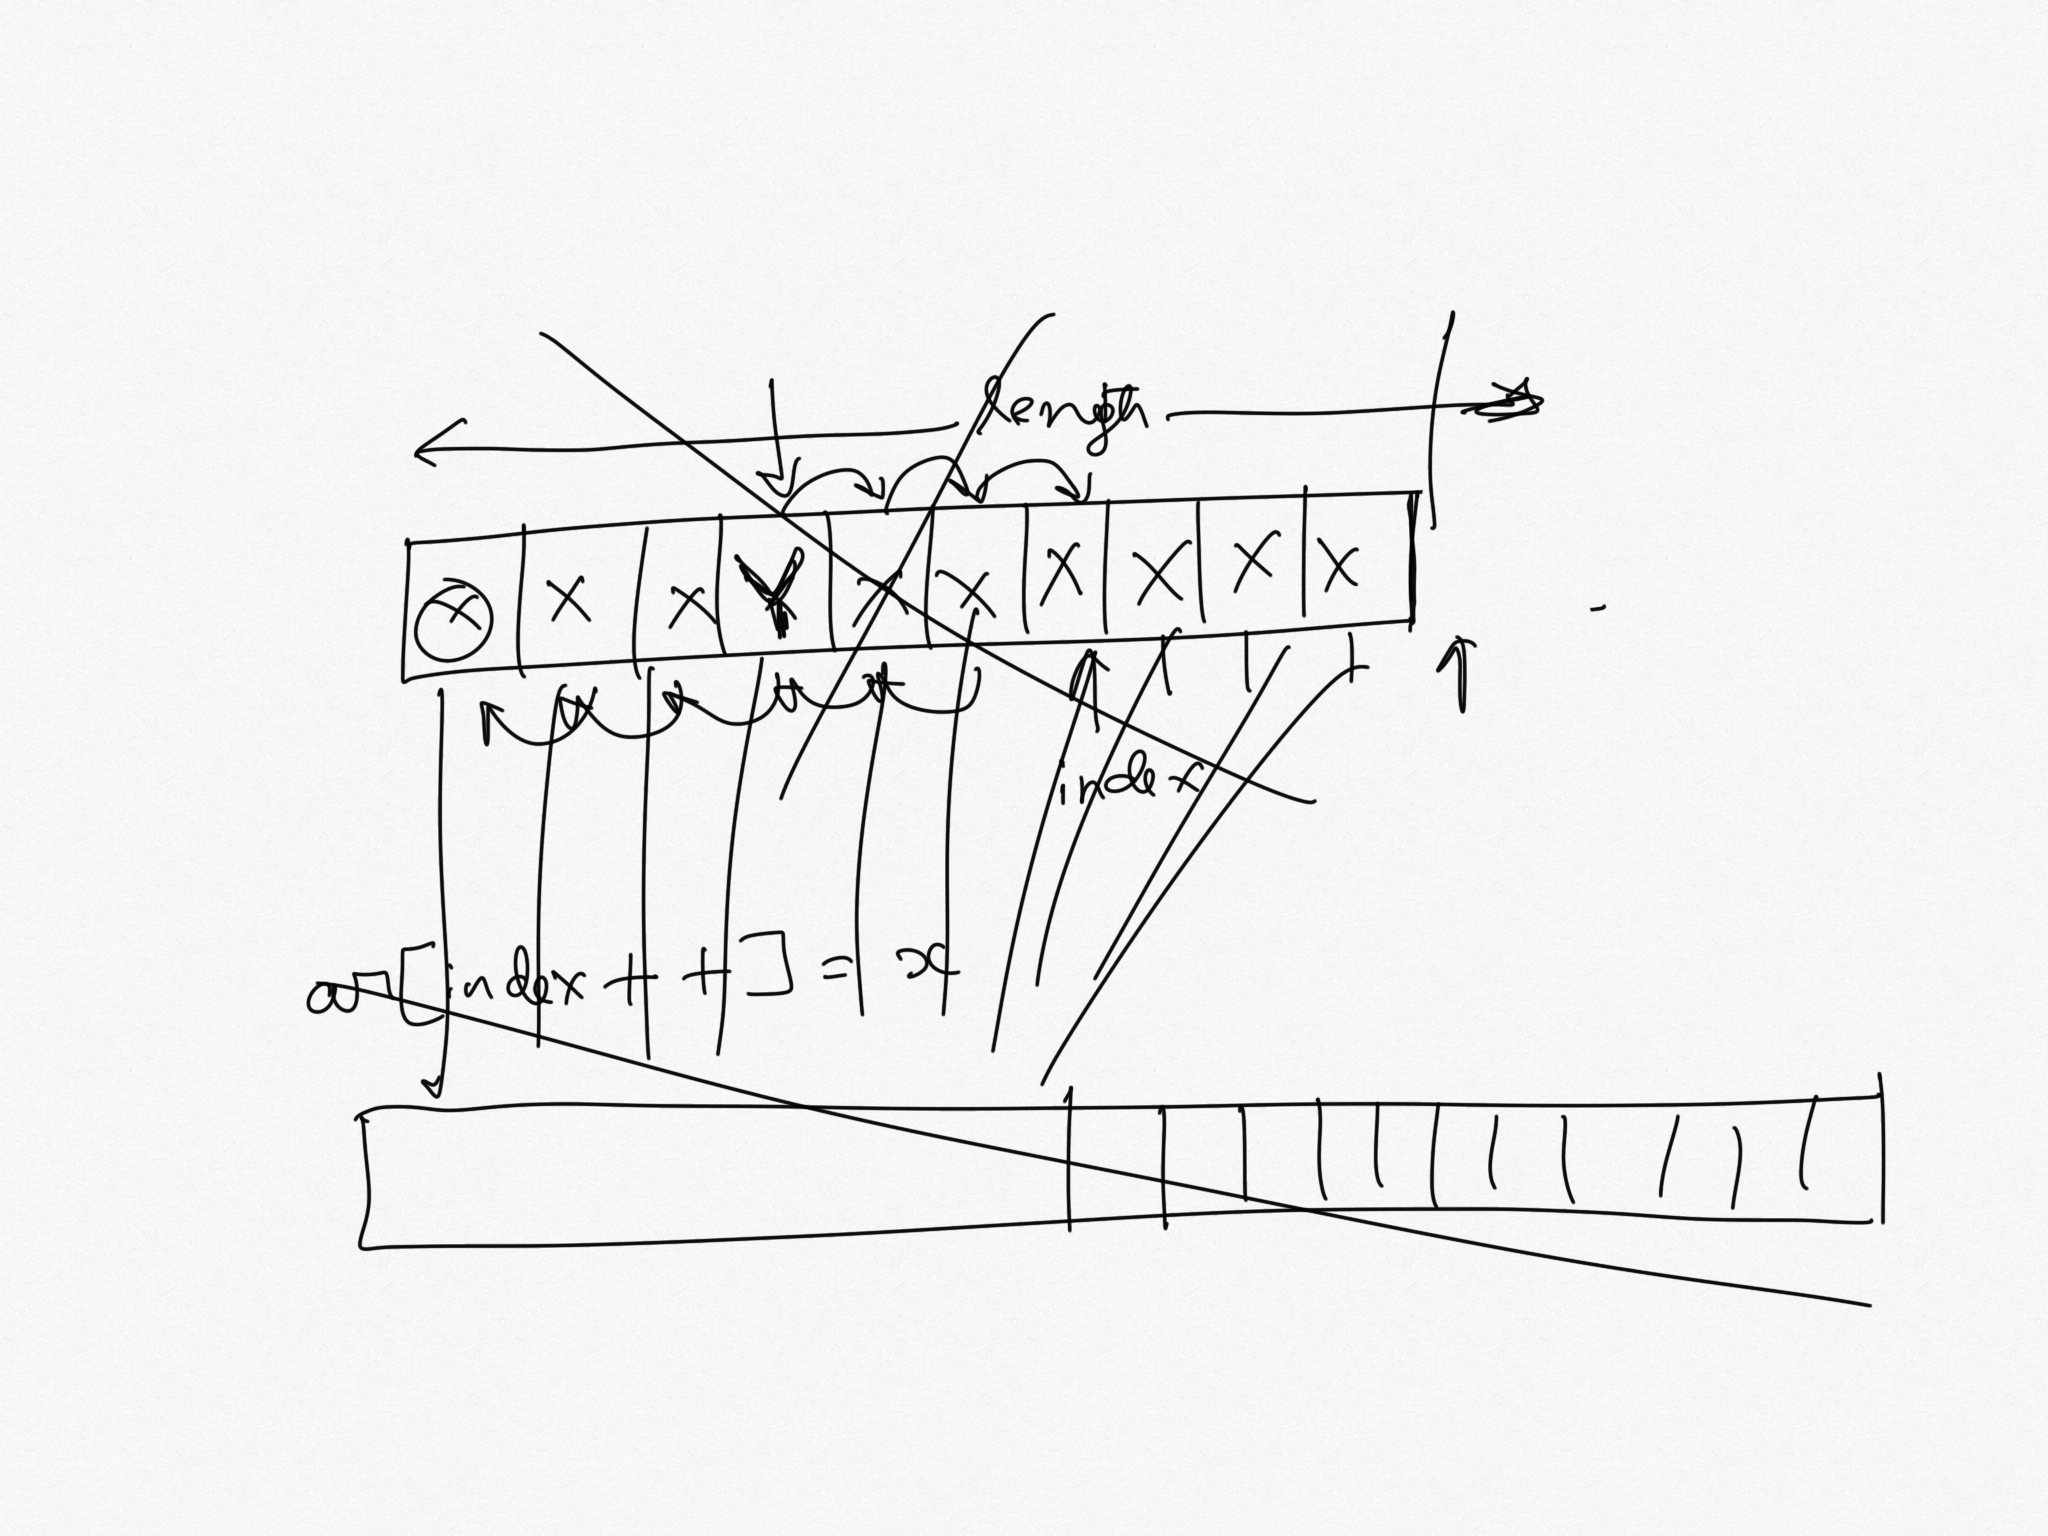 length
x x x Y x x x x x x
index
arr[index++] = x